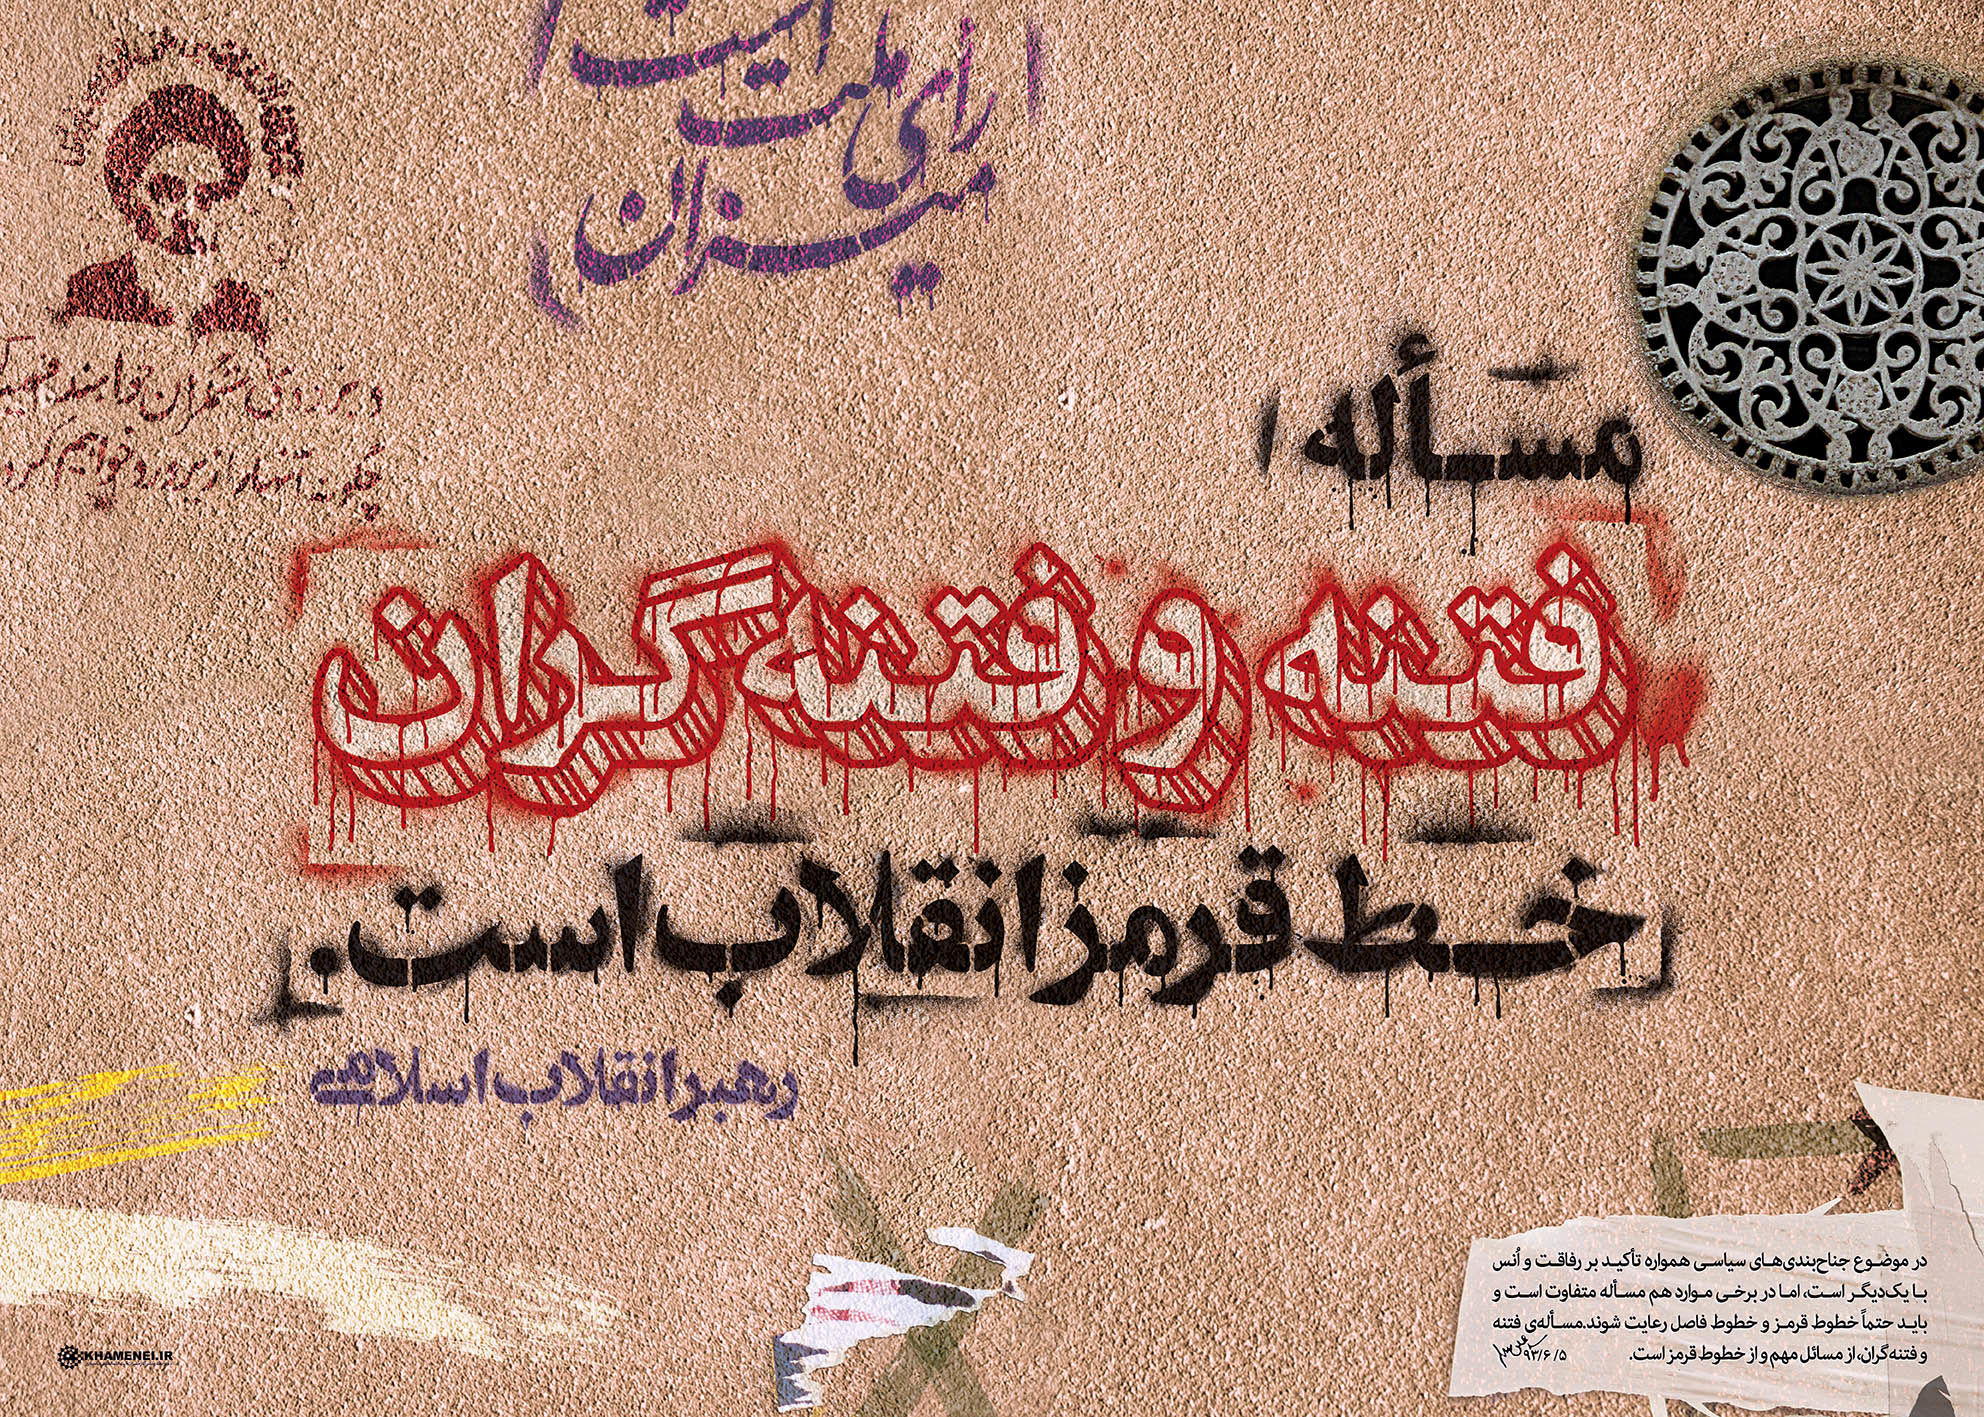 است
رأی ملت
میزان
مسأله
فتنه و فتنه‌گران
خط قرمز انقلاب است.
رهبر انقلاب اسلامی
در موضوع جناح‌بندی‌های سیاسی همواره تأکید بر رفاقت و اُنس
با یک‌دیگر است، اما در برخی موارد هم مسأله متفاوت است و
باید حتماً خطوط قرمز و خطوط فاصل رعایت شوند.مسأله‌ی فتنه
و فتنه‌گران، از مسائل مهم و از خطوط قرمز است. ۹۳/۶/۵
KHAMENEI.IR